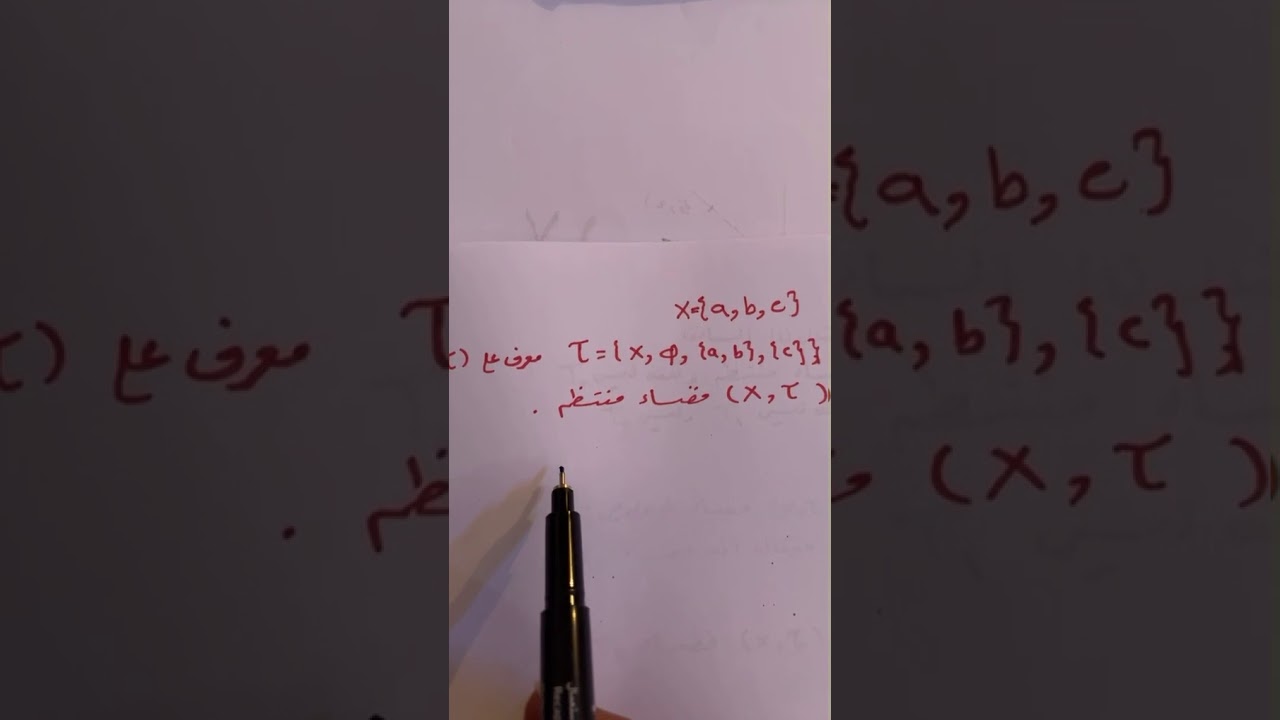 X={a,b,c}
τ={X,φ,{a,b},{c}} معرف على (τ
(X,τ) فضاء منتظم .